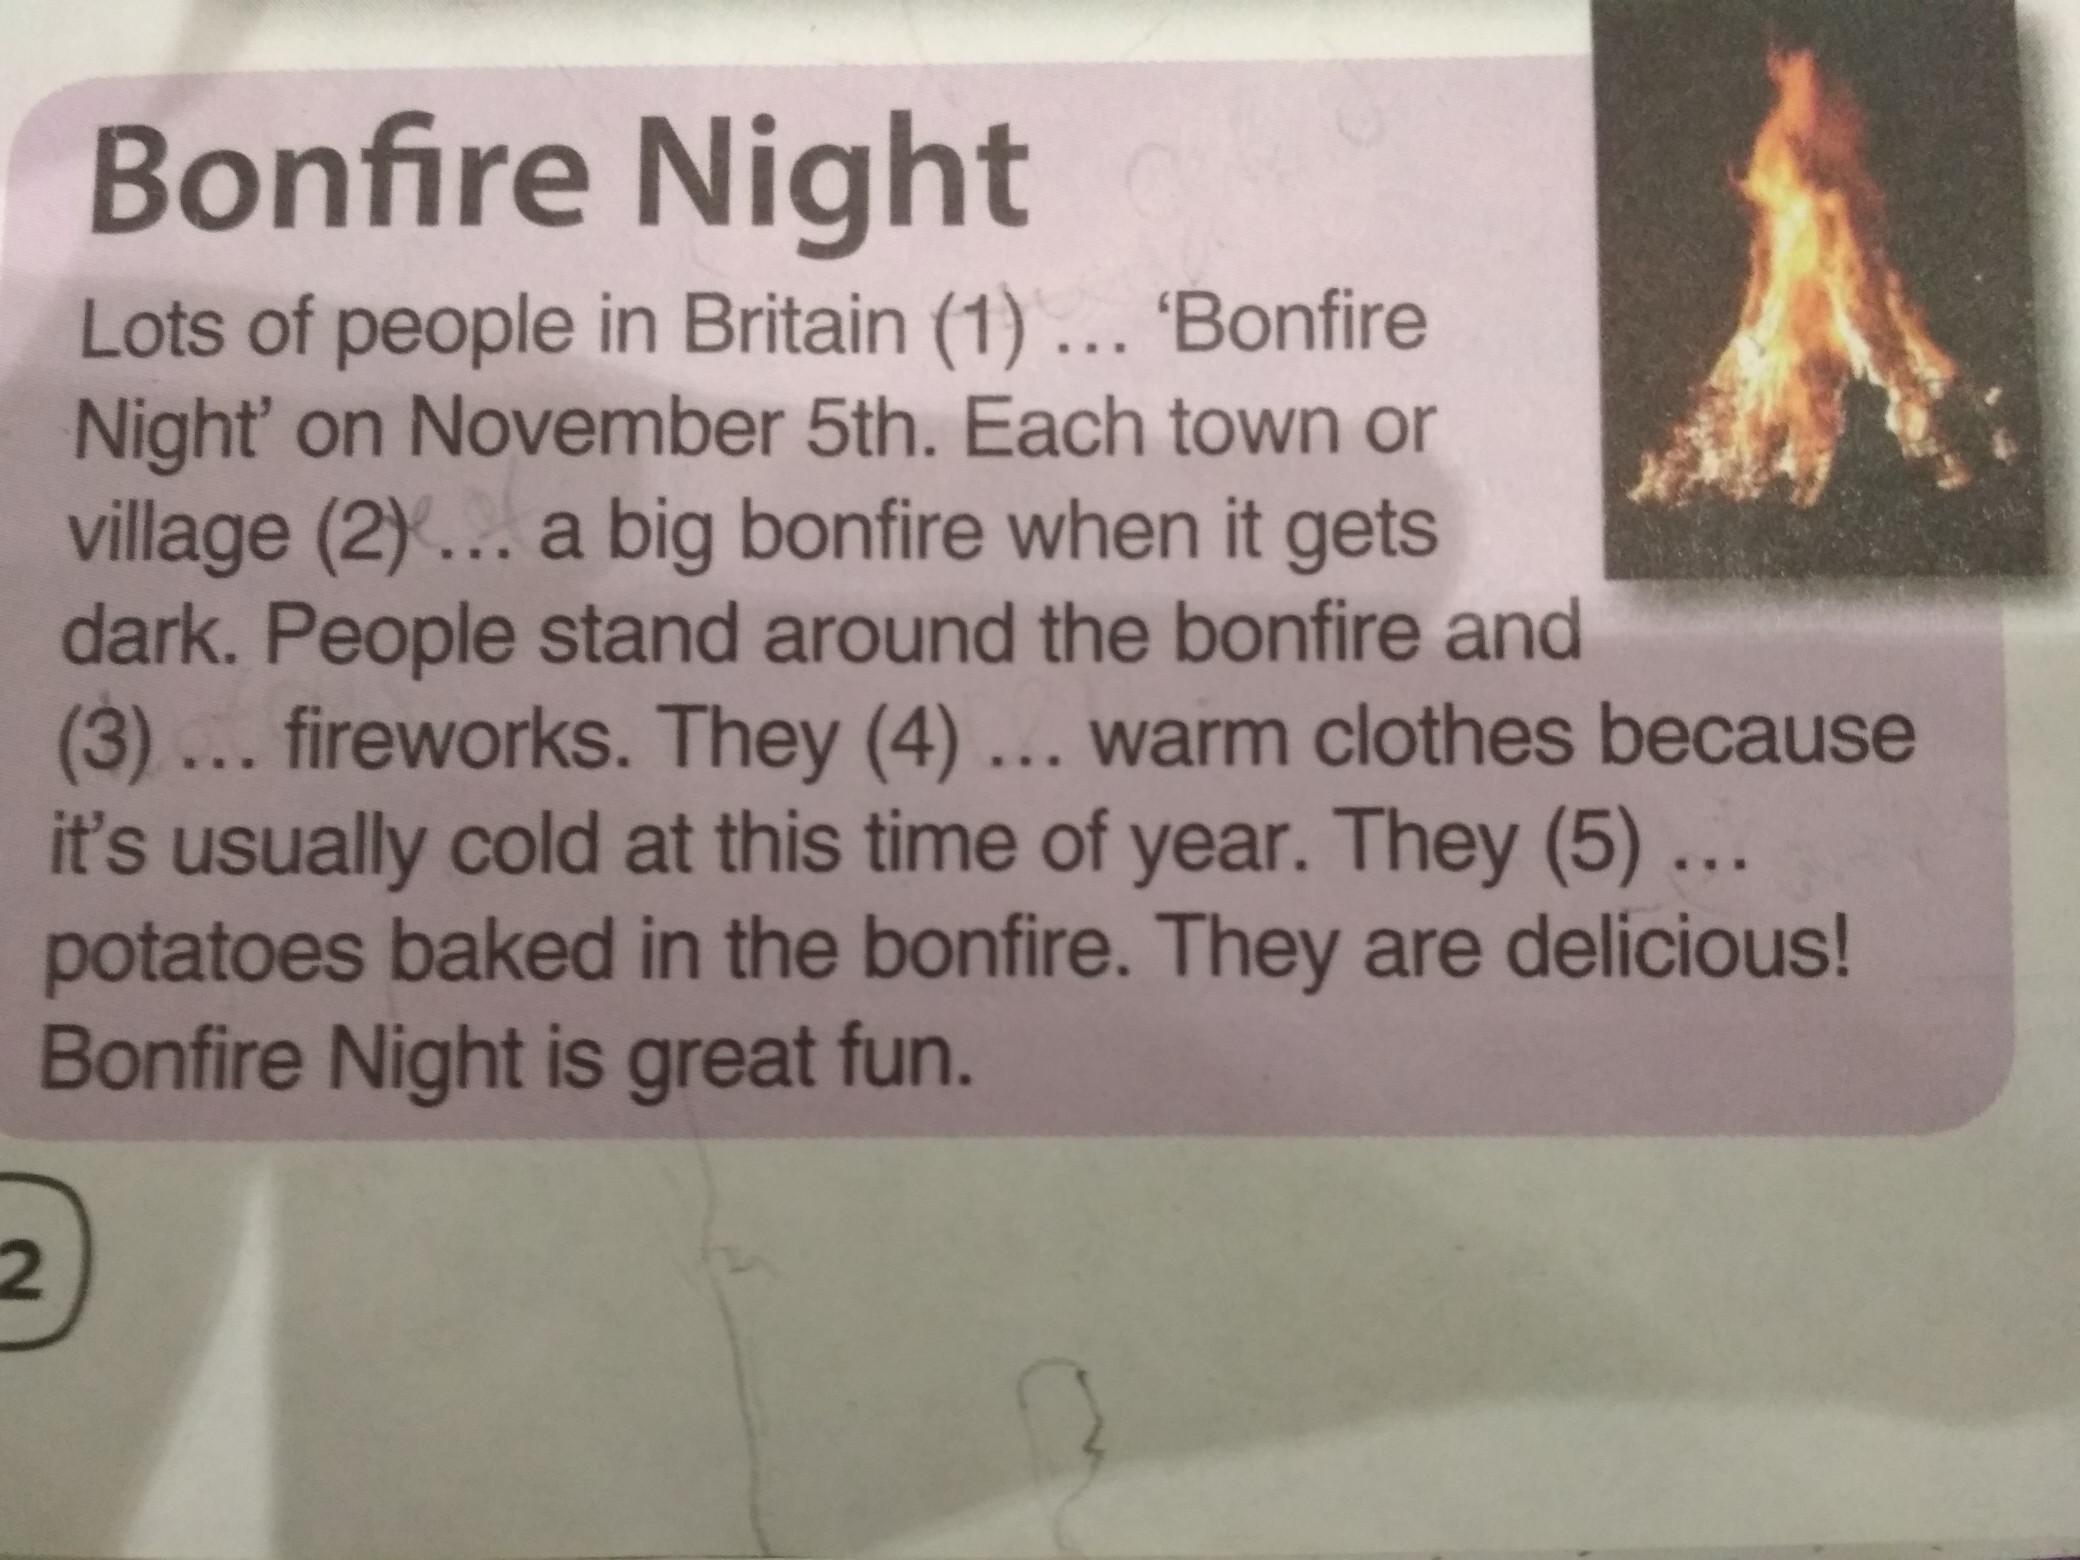 Bonfire Night
Lots of people in Britain (1) … ‘Bonfire
Night’ on November 5th. Each town or
village (2) … a big bonfire when it gets
dark. People stand around the bonfire and
(3) … fireworks. They (4) … warm clothes because
it’s usually cold at this time of year. They (5) …
potatoes baked in the bonfire. They are delicious!
Bonfire Night is great fun.
2